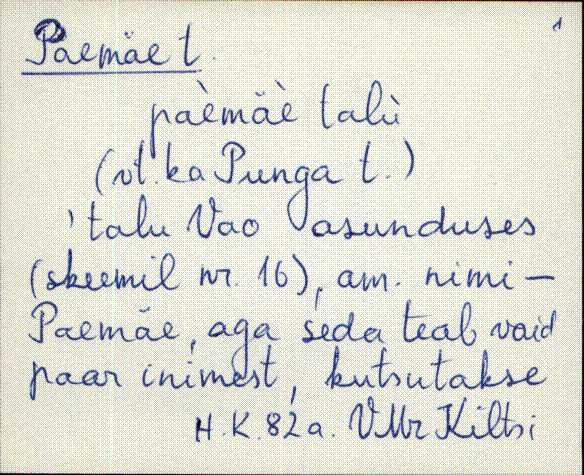 1
Paemäe t.
pàèmäè talù
(vt. ka Punga t.)
'talu Vao asunduses
(skeemil nr. 16), am. nimi –
Paemäe, aga seda teab vaid
paar inimest, kutsutakse
H.K. 82a. VMr Kiltsi